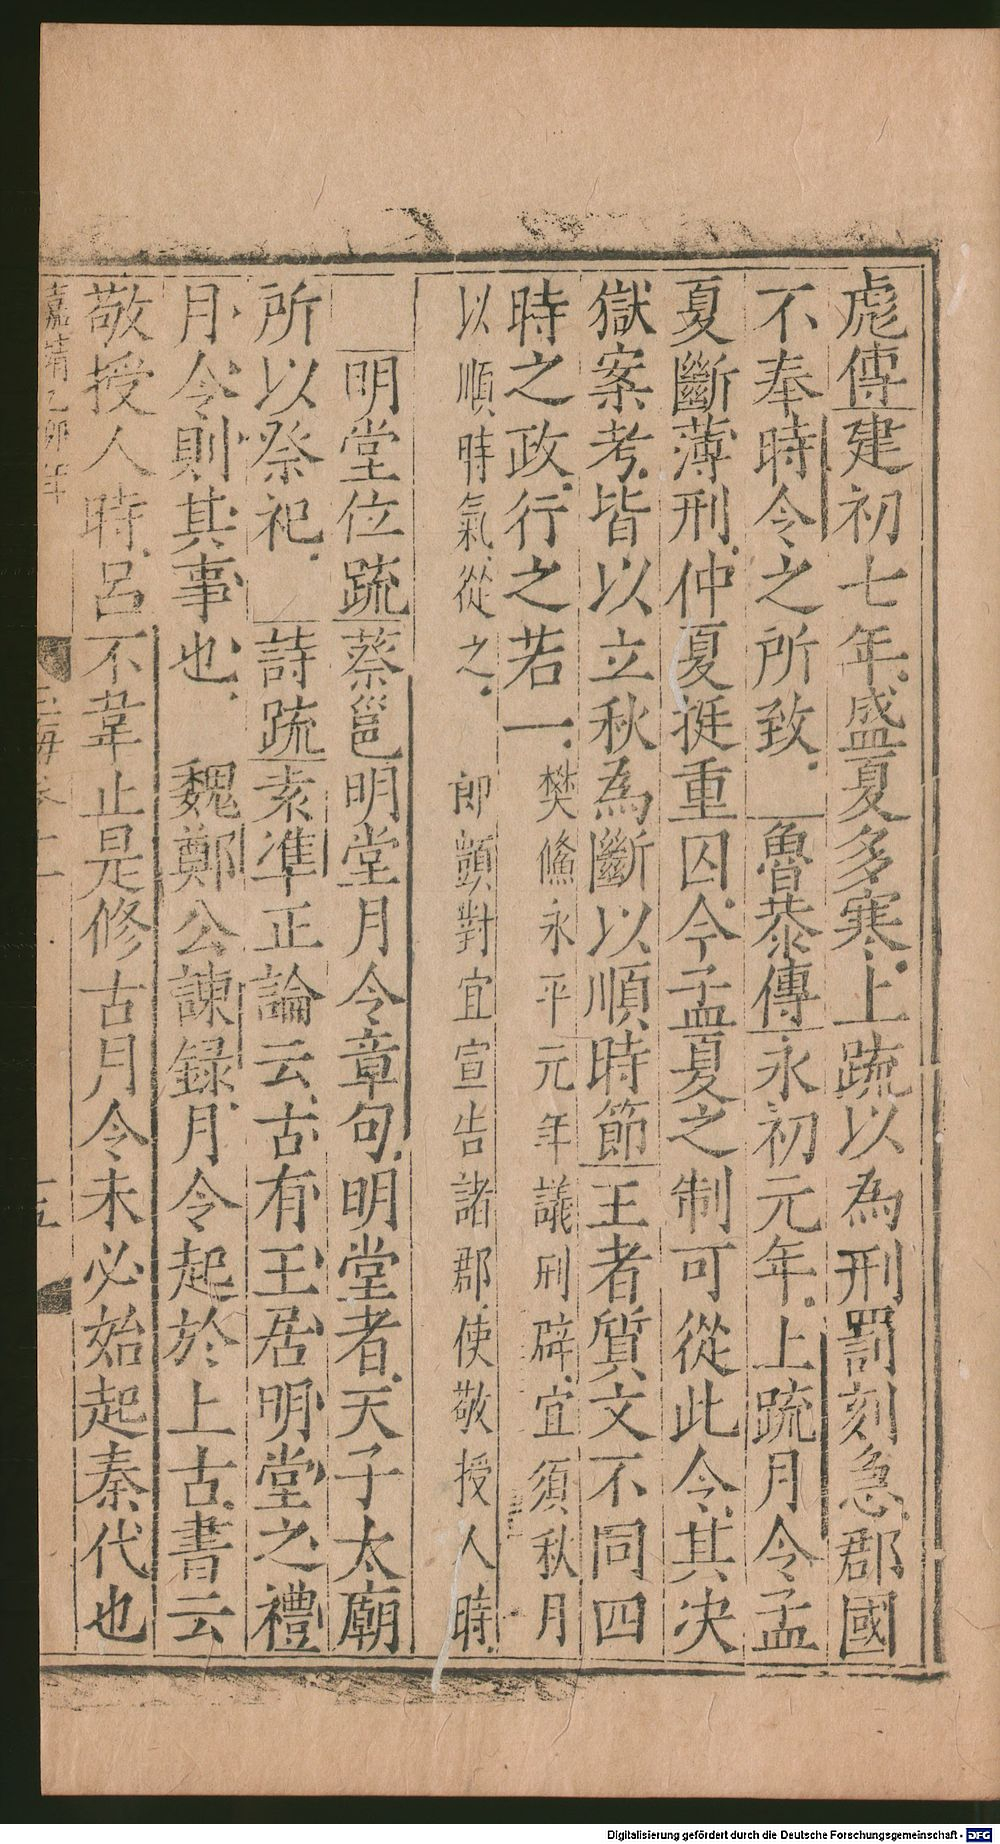 彪傳建初七年盛夏多寒上疏以為刑罰刻急郡國
不奉時令之所致 魯恭傳永初元年上疏月令孟
夏斷薄刑仲夏挺重囚今孟夏之制可從此令其決
獄案考皆以立秋為斷以順時節王者質文不同四
時之政行之若一 樊鯈永平元年議刑辟宜須秋月
以順時氣從之 郎顗對宜宣告諸郡使敬授人時
明堂位疏蔡邕明堂月令章句明堂者天子太廟
所以祭祀 詩疏袁準正論云古有王居明堂之禮
月令則其事也 魏鄭公諫録月令起於上古書云
敬授人時呂不韋止是修古月令未必始起秦代也
嘉靖乙卯年 玉海卷十二 十五
Digitalisierung gefördert durch die Deutsche Forschungsgemeinschaft - DFG